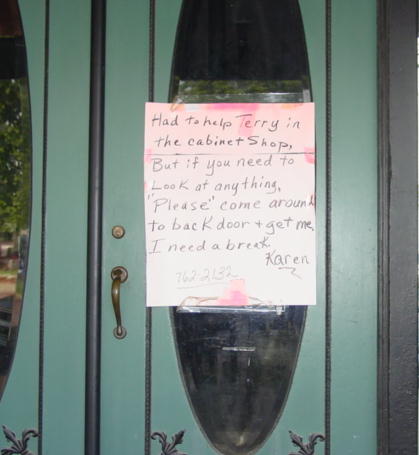 Had to help Terry in
the cabinet Shop,
But if you need to
Look at anything,
"Please" come around
to back door + get me.
I need a break
Karen
762-2132